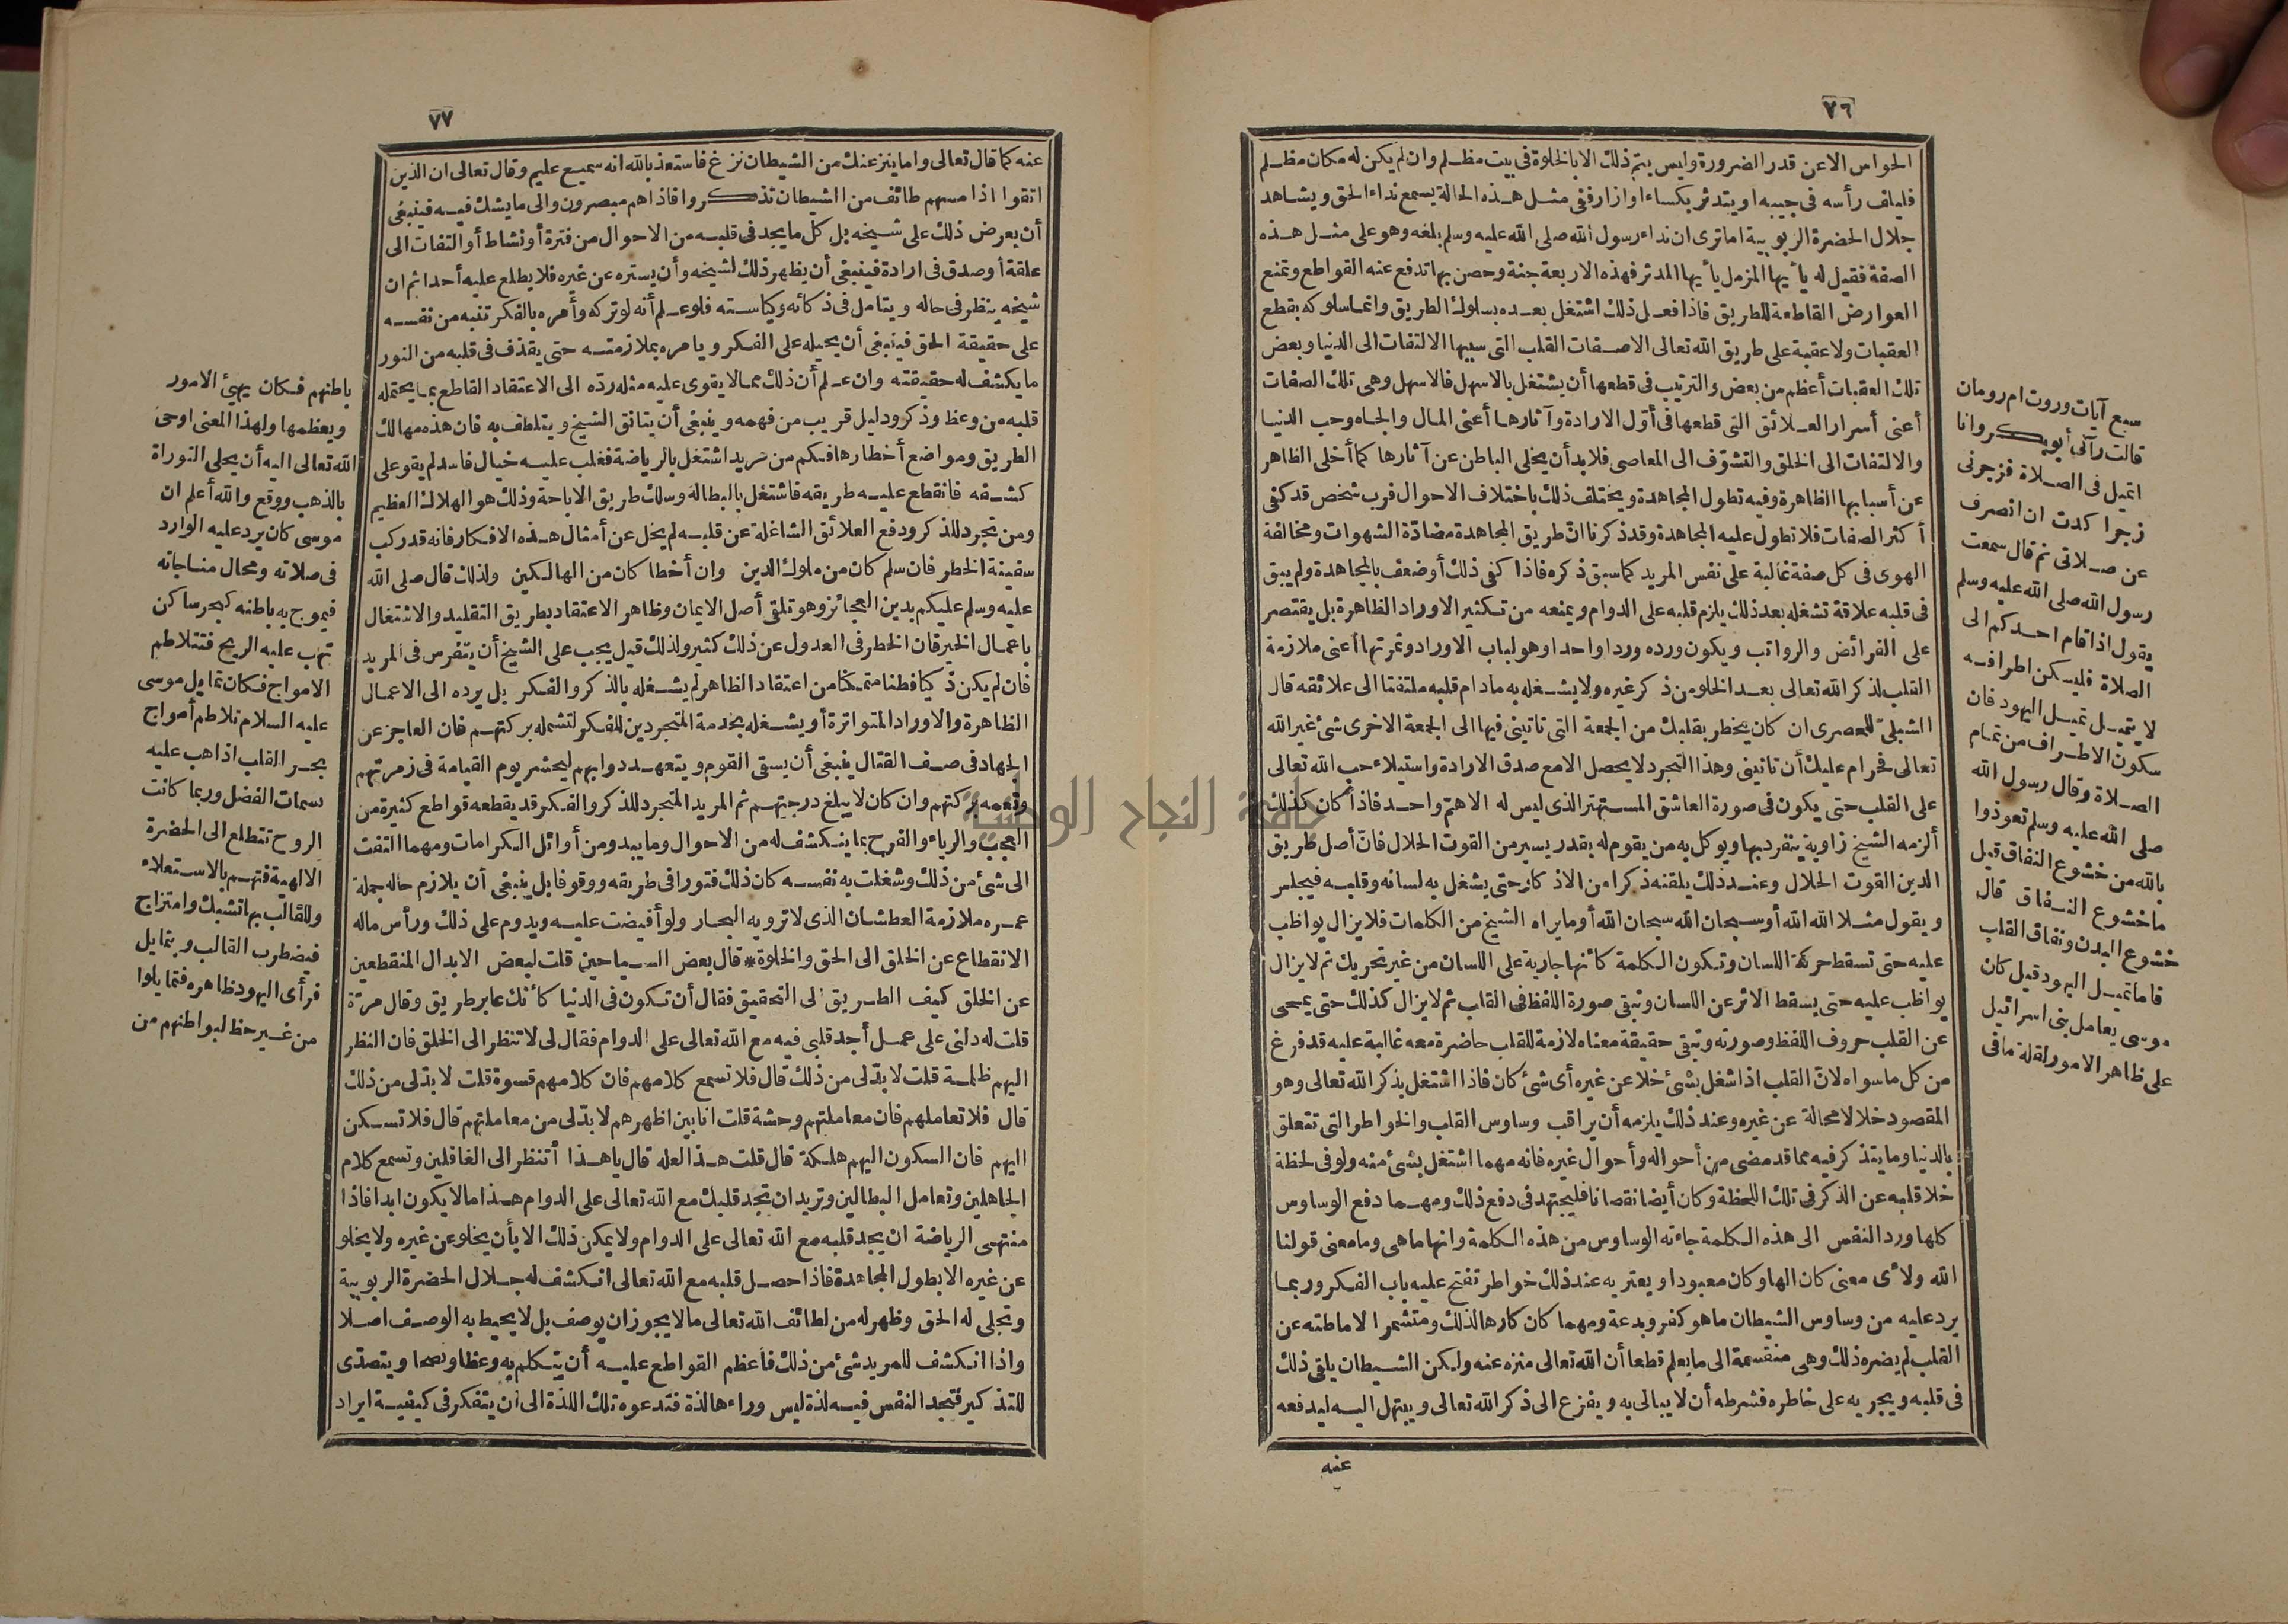 ٧٦
الحواس الا عن قدر الضرورة وليس يتم ذلك الا بالخلوة فى بيت مظلم وان لم يكن له مكان مظلم
فليلف رأسه فى جيبه او يتدثر بكساء او ازار ففى مثل هذه الحالة يسمع نداء الحق ويشاهد
جلال الحضرة الربوبية اما ترى ان نداء رسول الله صلى الله عليه وسلم بلغه وهو على مثل هذه
الصفة فقيل له يا أيها المزمل يا أيها المدثر فهذه الاربعة جنة وحصن بها تدفع عنه القواطع وتمنع
العوارض القاطعة للطريق فاذا فعل ذلك اشتغل بعده بسلوك الطريق وانما سلوكه بقطع
العقبات ولا عقبة على طريق الله تعالى الا صفات القلب التى سببها الالتفات الى الدنيا وبعض
تلك العقبات أعظم من بعض والترتيب فى قطعها أن يشتغل بالاسهل فالاسهل وهى تلك الصفات
أعنى أسرار العلائق التى قطعها فى أول الارادة وآثارها أعنى المال والجاه وحب الدنيا
والالتفات الى الخلق والتشوف الى المعاصى فلا بد أن يخلى الباطن عن آثارها كما أخلى الظاهر
عن أسبابها الظاهرة وفيه تطول المجاهدة ويختلف ذلك باختلاف الاحوال فرب شخص قد كفى
أكثر الصفات فلا تطول عليه المجاهدة وقد ذكرنا ان طريق المجاهدة مضادة الشهوات ومخالفة
الهوى فى كل صفة غالبة على نفس المريد كما سبق ذكره فاذا كفى ذلك أو ضعف بالمجاهدة ولم يبق
فى قلبه علاقة تشغله بعد ذلك يلزم قلبه على الدوام ويمنعه من تكثير الاوراد الظاهرة بل يقتصر
على الفرائض والرواتب ويكون ورده وردا واحدا وهو لباب الاوراد وثمرتها أعنى ملازمة
القلب لذكر الله تعالى بعد الخلو من ذكر غيره ولا يشغله به ما دام قلبه ملتفتا الى علائقه قال
الشبلى للحصرى ان كان يخطر بقلبك من الجمعة التى تاتينى فيها الى الجمعة الاخرى شئ غير الله
تعالى فحرام عليك أن تاتينى وهذا التجرد لا يحصل الا مع صدق الارادة واستيلاء حب الله تعالى
على القلب حتى يكون فى صورة العاشق المستهتر الذى ليس له الا هم واحد فاذا كان كذلك
ألزمه الشيخ زاوية ينفرد بها ويوكل به من يقوم له بقدر يسير من القوت الحلال فان أصل طريق
الدين القوت الحلال وعند ذلك يلقنه ذكرا من الاذكار حتى يشغل به لسانه وقلبه فيجلس
ويقول مثلا الله الله أو سبحان الله سبحان الله أو ما يراه الشيخ من الكلمات فلا يزال يواظب
عليه حتى تسقط حركة اللسان وتكون الكلمة كأنها جارية على اللسان من غير تحريك ثم لا يزال
يواظب عليه حتى يسقط الاثر عن اللسان وتبقى صورة اللفظ فى القلب ثم لا يزال كذلك حتى يمحى
عن القلب حروف اللفظ وصورته وتبقى حقيقة معناه لازمة للقلب حاضرة معه غالبة عليه قد فرغ
من كل ما سواه لان القلب اذا شغل بشئ خلا عن غيره أى شئ كان فاذا اشتغل بذكر الله تعالى وهو
المقصود خلا لا محالة عن غيره وعند ذلك يلزمه أن يراقب وساوس القلب والخواطر التى تتعلق
بالدنيا وما يتذكر فيه مما قد مضى من أحواله وأحوال غيره فانه مهما اشتغل بشئ منه ولو فى لحظة
خلا قلبه عن الذكر فى تلك اللحظة وكان أيضا نقصانا فليجتهد فى دفع ذلك ومهما دفع الوساوس
كلها ورد النفس الى هذه الكلمة جاءته الوساوس من هذه الكلمة وانها ما هى وما معنى قولنا
الله ولأى معنى كان الها وكان معبودا ويعتريه عند ذلك خواطر تفتح عليه باب الفكر وربما
يرد عليه من وساوس الشيطان ما هو كفر وبدعة ومهما كان كارها لذلك ومتشمرا لاماطته عن
القلب لم يضره ذلك وهى منقسمة الى ما يعلم قطعا أن الله تعالى منزه عنه ولكن الشيطان يلقى ذلك
فى قلبه ويجريه على خاطره فشرطه أن لا يبالى به ويفزع الى ذكر الله تعالى ويبتهل اليه ليدفعه
عنه
سبع آيات وروت ام رومان
قالت رآنى أبو بكر وانا
اتميل فى الصلاة فزجرنى
زجرا كدت ان انصرف
عن صلاتى ثم قال سمعت
رسول الله صلى الله عليه وسلم
يقول اذا قام احدكم الى
الصلاة فليسكن اطرافه
لا يتميل تميل اليهود فان
سكون الاطراف من تمام
الصلاة وقال رسول الله
صلى الله عليه وسلم تعوذوا
بالله من خشوع النفاق قيل
ما خشوع النفاق قال
خشوع البدن ونفاق القلب
فاما تميل اليهود قيل كان
موسى يعامل بنى اسرائيل
على ظاهر الامور لقلة ما فى
٧٧
عنه كما قال تعالى واما ينزغنك من الشيطان نزغ فاستعذ بالله انه سميع عليم وقال تعالى ان الذين
اتقوا اذا مسهم طائف من الشيطان تذكروا فاذا هم مبصرون والى ما يشك فيه فينبغى
أن يعرض ذلك على شيخه بل كل ما يجد فى قلبه من الاحوال من فترة أو نشاط أو التفات الى
علقة أو صدق فى ارادة فينبغى أن يظهر ذلك لشيخه وأن يستره عن غيره فلا يطلع عليه أحدا ثم ان
شيخه ينظر فى حاله ويتامل فى ذكائه وكياسته فلو علم أنه لو تركه وأمره بالفكر تنبه من نفسه
على حقيقة الحق فينبغى أن يحيله على الفكر ويامره بملازمته حتى يقذف فى قلبه من النور
ما يكشف له حقيقته وان علم أن ذلك مما لا يقوى عليه مثله رده الى الاعتقاد القاطع بما يحتمله
قلبه من وعظ وذكر ودليل قريب من فهمه وينبغى أن يتانق الشيخ ويتلطف به فان هذه مهالك
الطريق ومواضع أخطارها فكم من مريد اشتغل بالرياضة فغلب عليه خيال فاسد لم يقو على
كشفه فانقطع عليه طريقه فاشتغل بالبطالة وسلك طريق الاباحة وذلك هو الهلاك العظيم
ومن تجرد للذكر ودفع العلائق الشاغلة عن قلبه لم يخل عن أمثال هذه الافكار فانه قد ركب
سفينة الخطر فان سلم كان من ملوك الدين وان أخطا كان من الهالكين ولذلك قال صلى الله
عليه وسلم عليكم بدين العجائز وهو تلقى أصل الايمان وظاهر الاعتقاد بطريق التقليد والاشتغال
باعمال الخير فان الخطر فى العدول عن ذلك كثير ولذلك قيل يجب على الشيخ أن يتفرس فى المريد
فان لم يكن ذكيا فطنا متمكنا من اعتقاد الظاهر لم يشغله بالذكر والفكر بل يرده الى الاعمال
الظاهرة والاوراد المتواترة أو يشغله بخدمة المتجردين للفكر لتشمله بركتهم فان العاجز عن
الجهاد فى صف القتال ينبغى أن يسقى القوم ويتعهد دوابهم ليحشر يوم القيامة فى زمرتهم
وتعمه بركتهم وان كان لا يبلغ درجتهم ثم المريد المتجرد للذكر والفكر قد يقطعه قواطع كثيرة من
العجب والرياء والفرح بما ينكشف له من الاحوال وما يبدو من أوائل الكرامات ومهما التفت
الى شئ من ذلك وشغلت به نفسه كان ذلك فتورا فى طريقه ووقوفا بل ينبغى أن يلازم حاله جملة
عمره ملازمة العطشان الذى لا ترويه البحار ولو أفيضت عليه ويدوم على ذلك ورأس ماله
الانقطاع عن الخلق الى الحق والخلوة * قال بعض السياحين قلت لبعض الابدال المنقطعين
عن الخلق كيف الطريق الى التحقيق فقال أن تكون فى الدنيا كأنك عابر طريق وقال مرة
قلت له دلنى على عمل أجد قلبى فيه مع الله تعالى على الدوام فقال لى لا تنظر الى الخلق فان النظر
اليهم ظلمة قلت لا بد لى من ذلك قال فلا تسمع كلامهم فان كلامهم قسوة قلت لا بد لى من ذلك
قال فلا تعاملهم فان معاملتهم وحشة قلت انا بين اظهرهم لا بد لى من معاملتهم قال فلا تسكن
اليهم فان السكون اليهم هلكة قال قلت هذا لعله قال يا هذا أتنظر الى الغافلين وتسمع كلام
الجاهلين وتعامل البطالين وتريد ان تجد قلبك مع الله تعالى على الدوام هذا ما لا يكون ابدا فاذا
منتهى الرياضة ان يجد قلبه مع الله تعالى على الدوام ولا يمكن ذلك الا بأن يخلو عن غيره ولا يخلو
عن غيره الا بطول المجاهدة فاذا حصل قلبه مع الله تعالى انكشف له جلال الحضرة الربوبية
وتجلى له الحق وظهر له من لطائف الله تعالى ما لا يجوز ان يوصف بل لا يحيط به الوصف اصلا
واذا انكشف للمريد شئ من ذلك فاعظم القواطع عليه أن يتكلم به وعظا ونصحا ويتصدى
للتذكير فتجد النفس فيه لذة ليس وراءها لذة فتدعوه تلك اللذة الى أن يتفكر فى كيفية ايراد
باطنهم فكان يهيئ الامور
ويعظمها ولهذا المعنى اوحى
الله تعالى اليه أن يحلى التوراة
بالذهب ووقع والله أعلم ان
موسى كان يرد عليه الوارد
فى صلاته ومحال مناجاته
فيموج به باطنه كبحر ساكن
تهب عليه الريح فتتلاطم
الامواج فكان تمايل موسى
عليه السلام تلاطم أمواج
بحر القلب اذا هب عليه
نسمات الفضل وربما كانت
الروح تتطلع الى الحضرة
الالهية فتهم بالاستعلاء
وللقالب بها تشبك وامتزاج
فيضطرب القالب ويتمايل
فرأى اليهود ظاهره فتمايلوا
من غير حظ لبواطنهم من
جامعة النجاح الوطنية